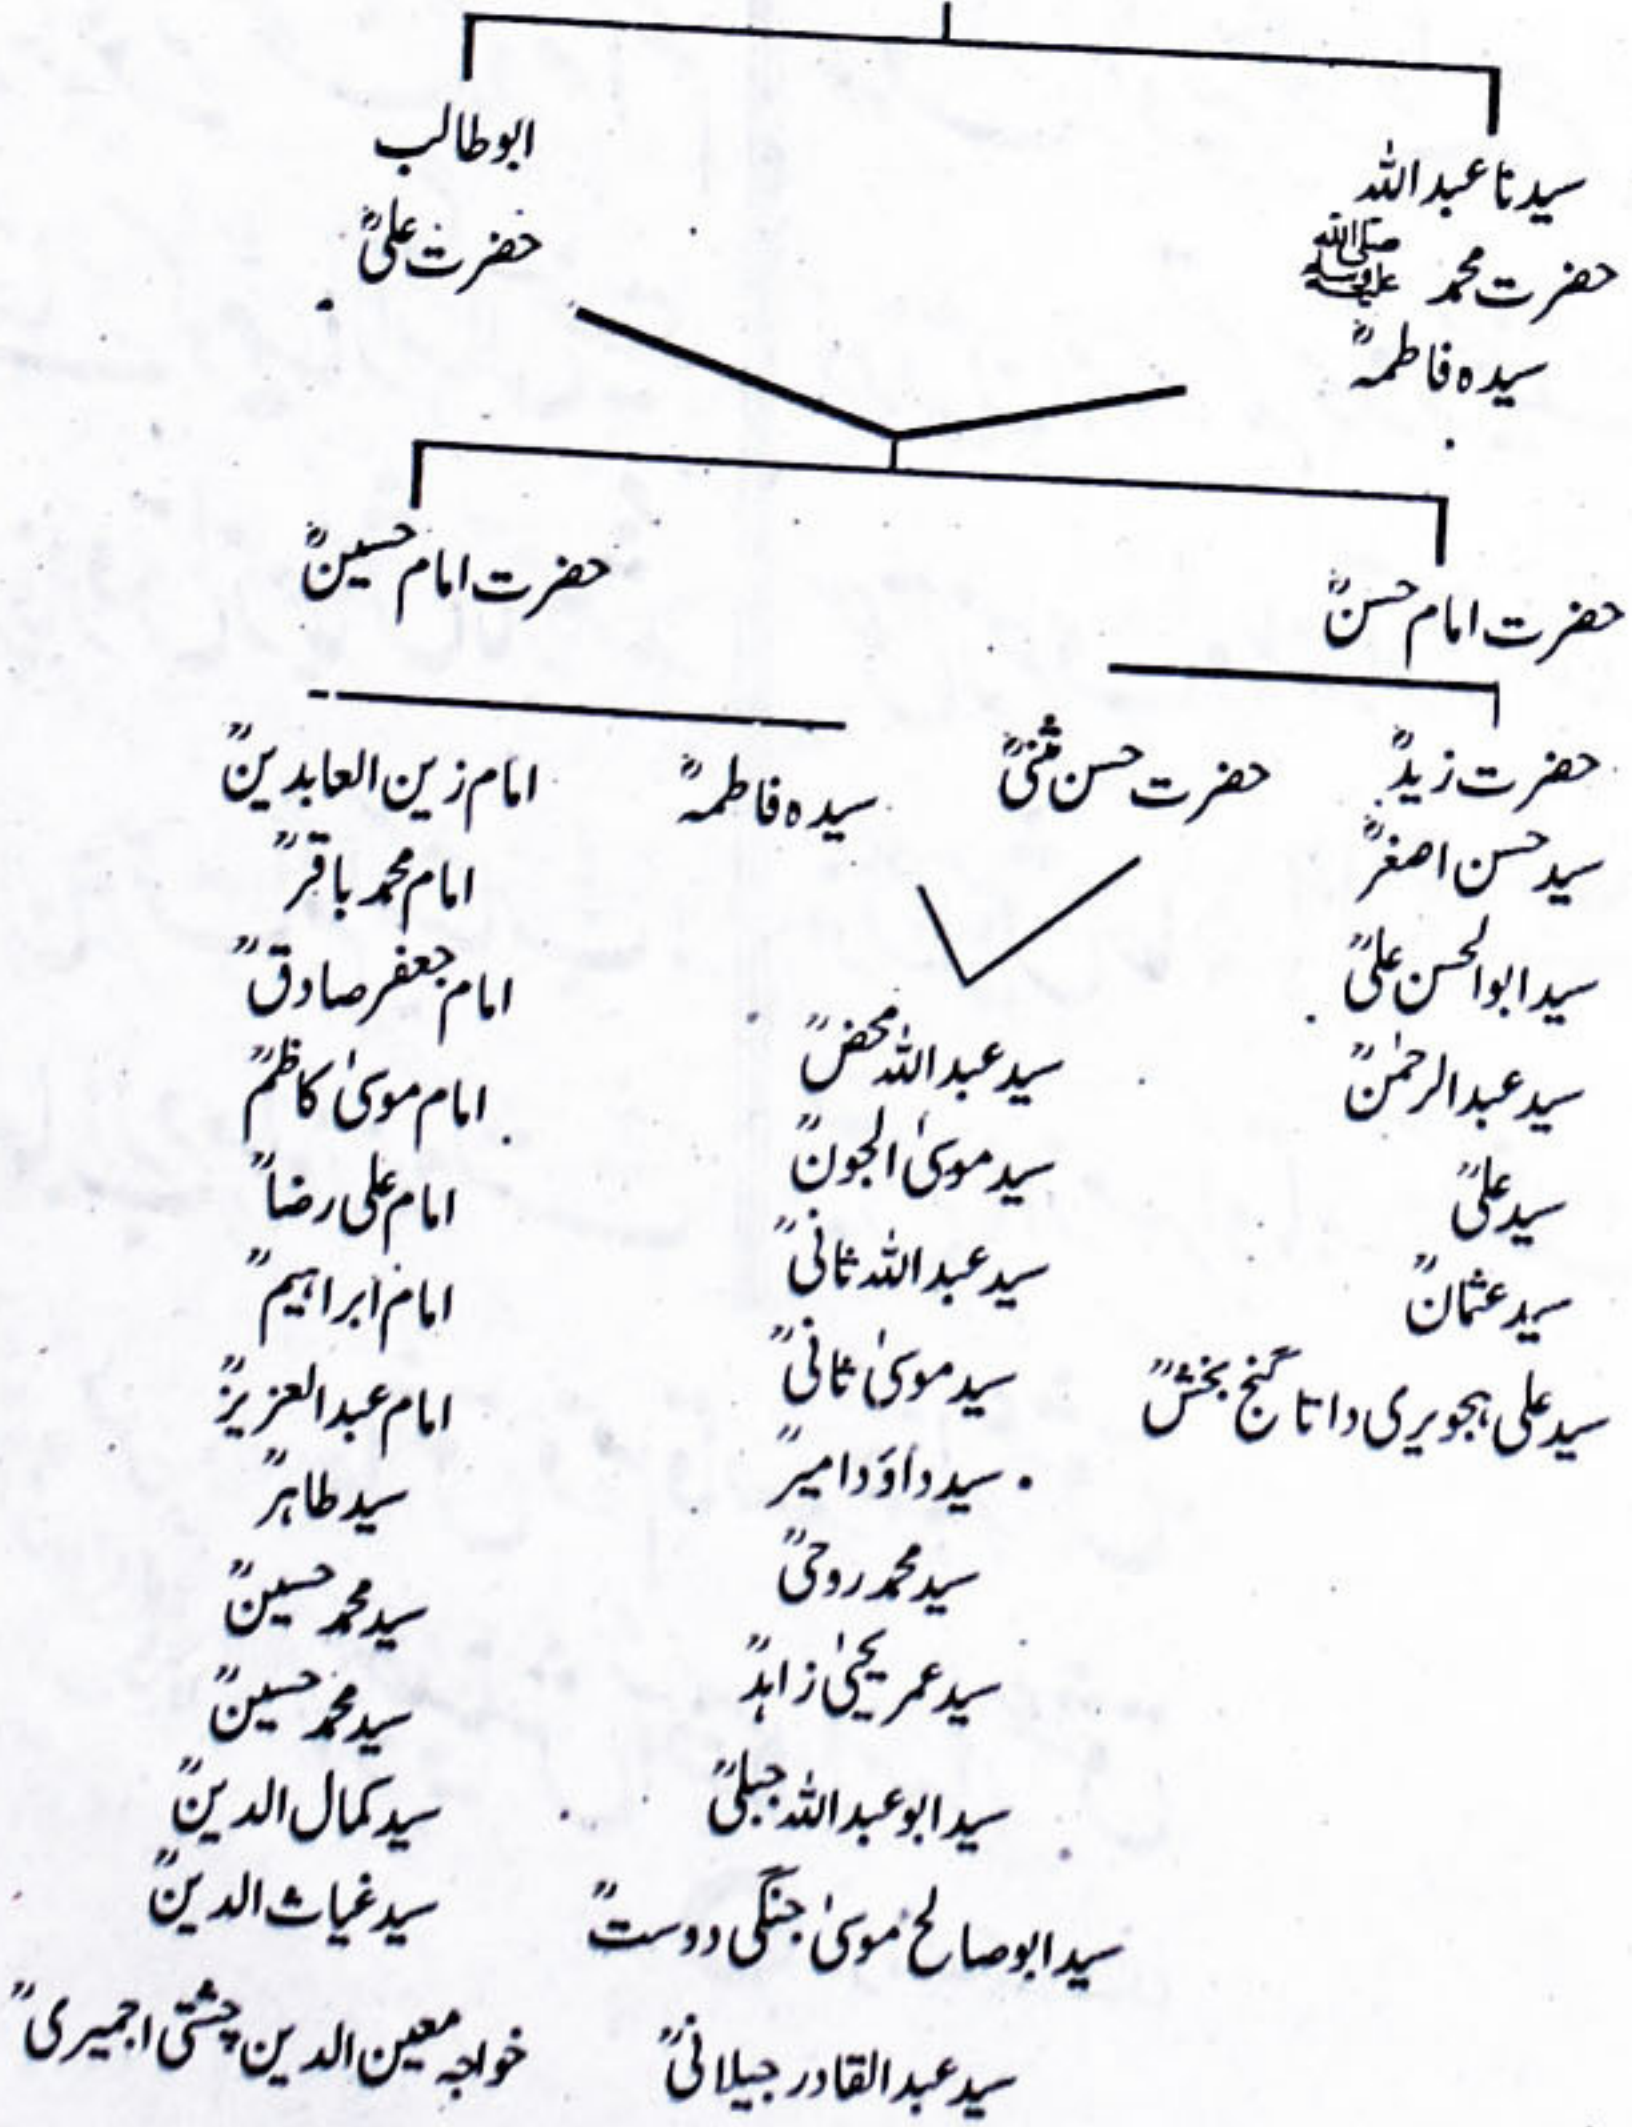 سیدنا عبداللہ
حضرت محمد ﷺ
سیدہ فاطمہؓ
ابوطالب
حضرت علیؓ
حضرت امام حسنؓ
حضرت امام حسینؓ
حضرت زیدؓ
سید حسن اصغرؒ
سید ابوالحسن علیؒ
سید عبدالرحمٰنؒ
سید علیؒ
سید عثمانؒ
سید علی ہجویری داتا گنج بخشؒ
حضرت حسن مثنیٰؓ
سیدہ فاطمہؓ
سید عبداللہ محضؒ
سید موسیٰ الجونؒ
سید عبداللہ ثانیؒ
سید موسیٰ ثانیؒ
سید داؤد امیرؒ
سید محمد روحیؒ
سید عمر یحییٰ زاہدؒ
سید ابو عبداللہ جیلیؒ
سید ابو صالح موسیٰ جنگی دوستؒ
سید عبدالقادر جیلانیؒ
امام زین العابدینؓ
امام محمد باقرؒ
امام جعفر صادقؒ
امام موسیٰ کاظمؒ
امام علی رضاؒ
امام ابراہیمؒ
امام عبدالعزیزؒ
سید طاہرؒ
سید محمد حسینؒ
سید محمد حسینؒ
سید کمال الدینؒ
سید غیاث الدینؒ
خواجہ معین الدین چشتی اجمیریؒ